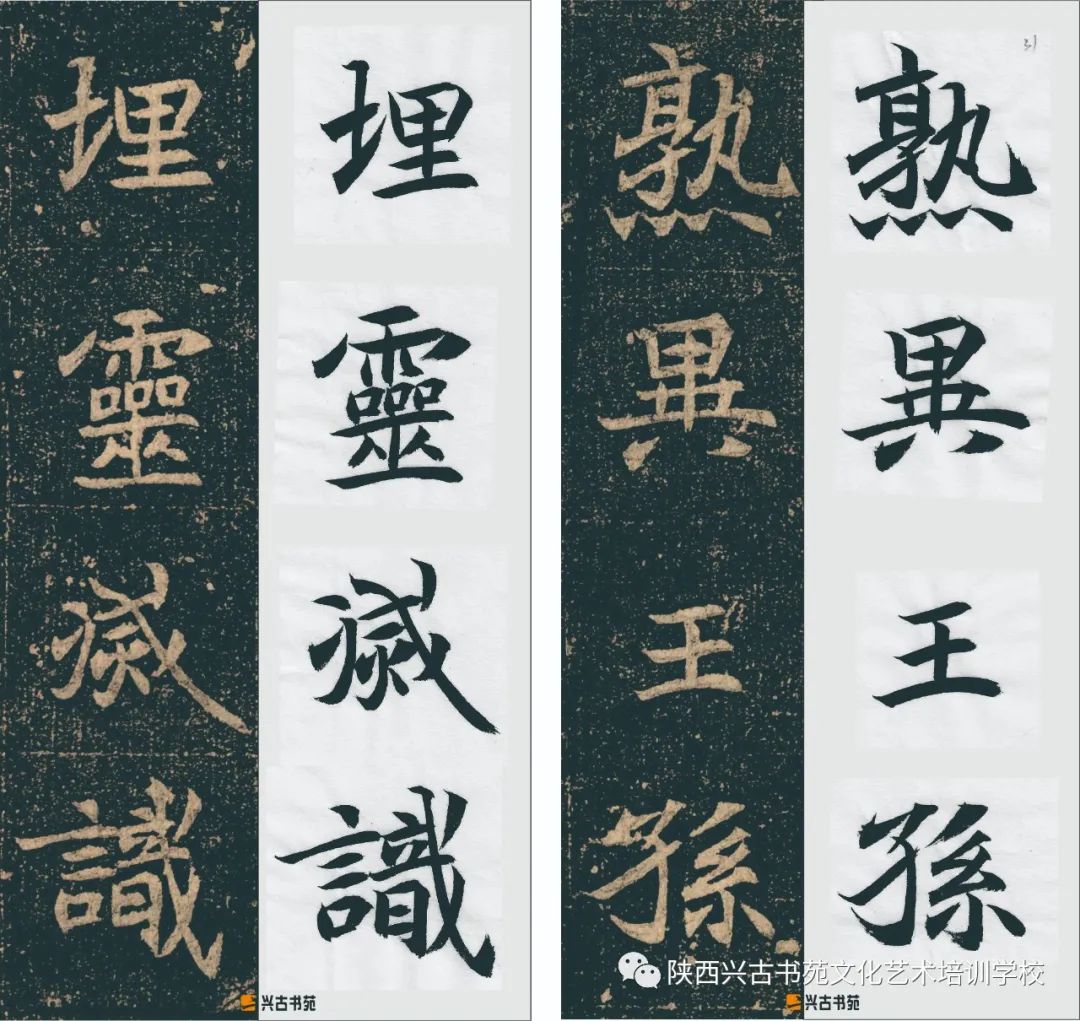 埋靈滅識
埋靈滅識
兴古书苑
熟異王孫
31
熟異王孫
陕西兴古书苑文化艺术培训学校
兴古书苑